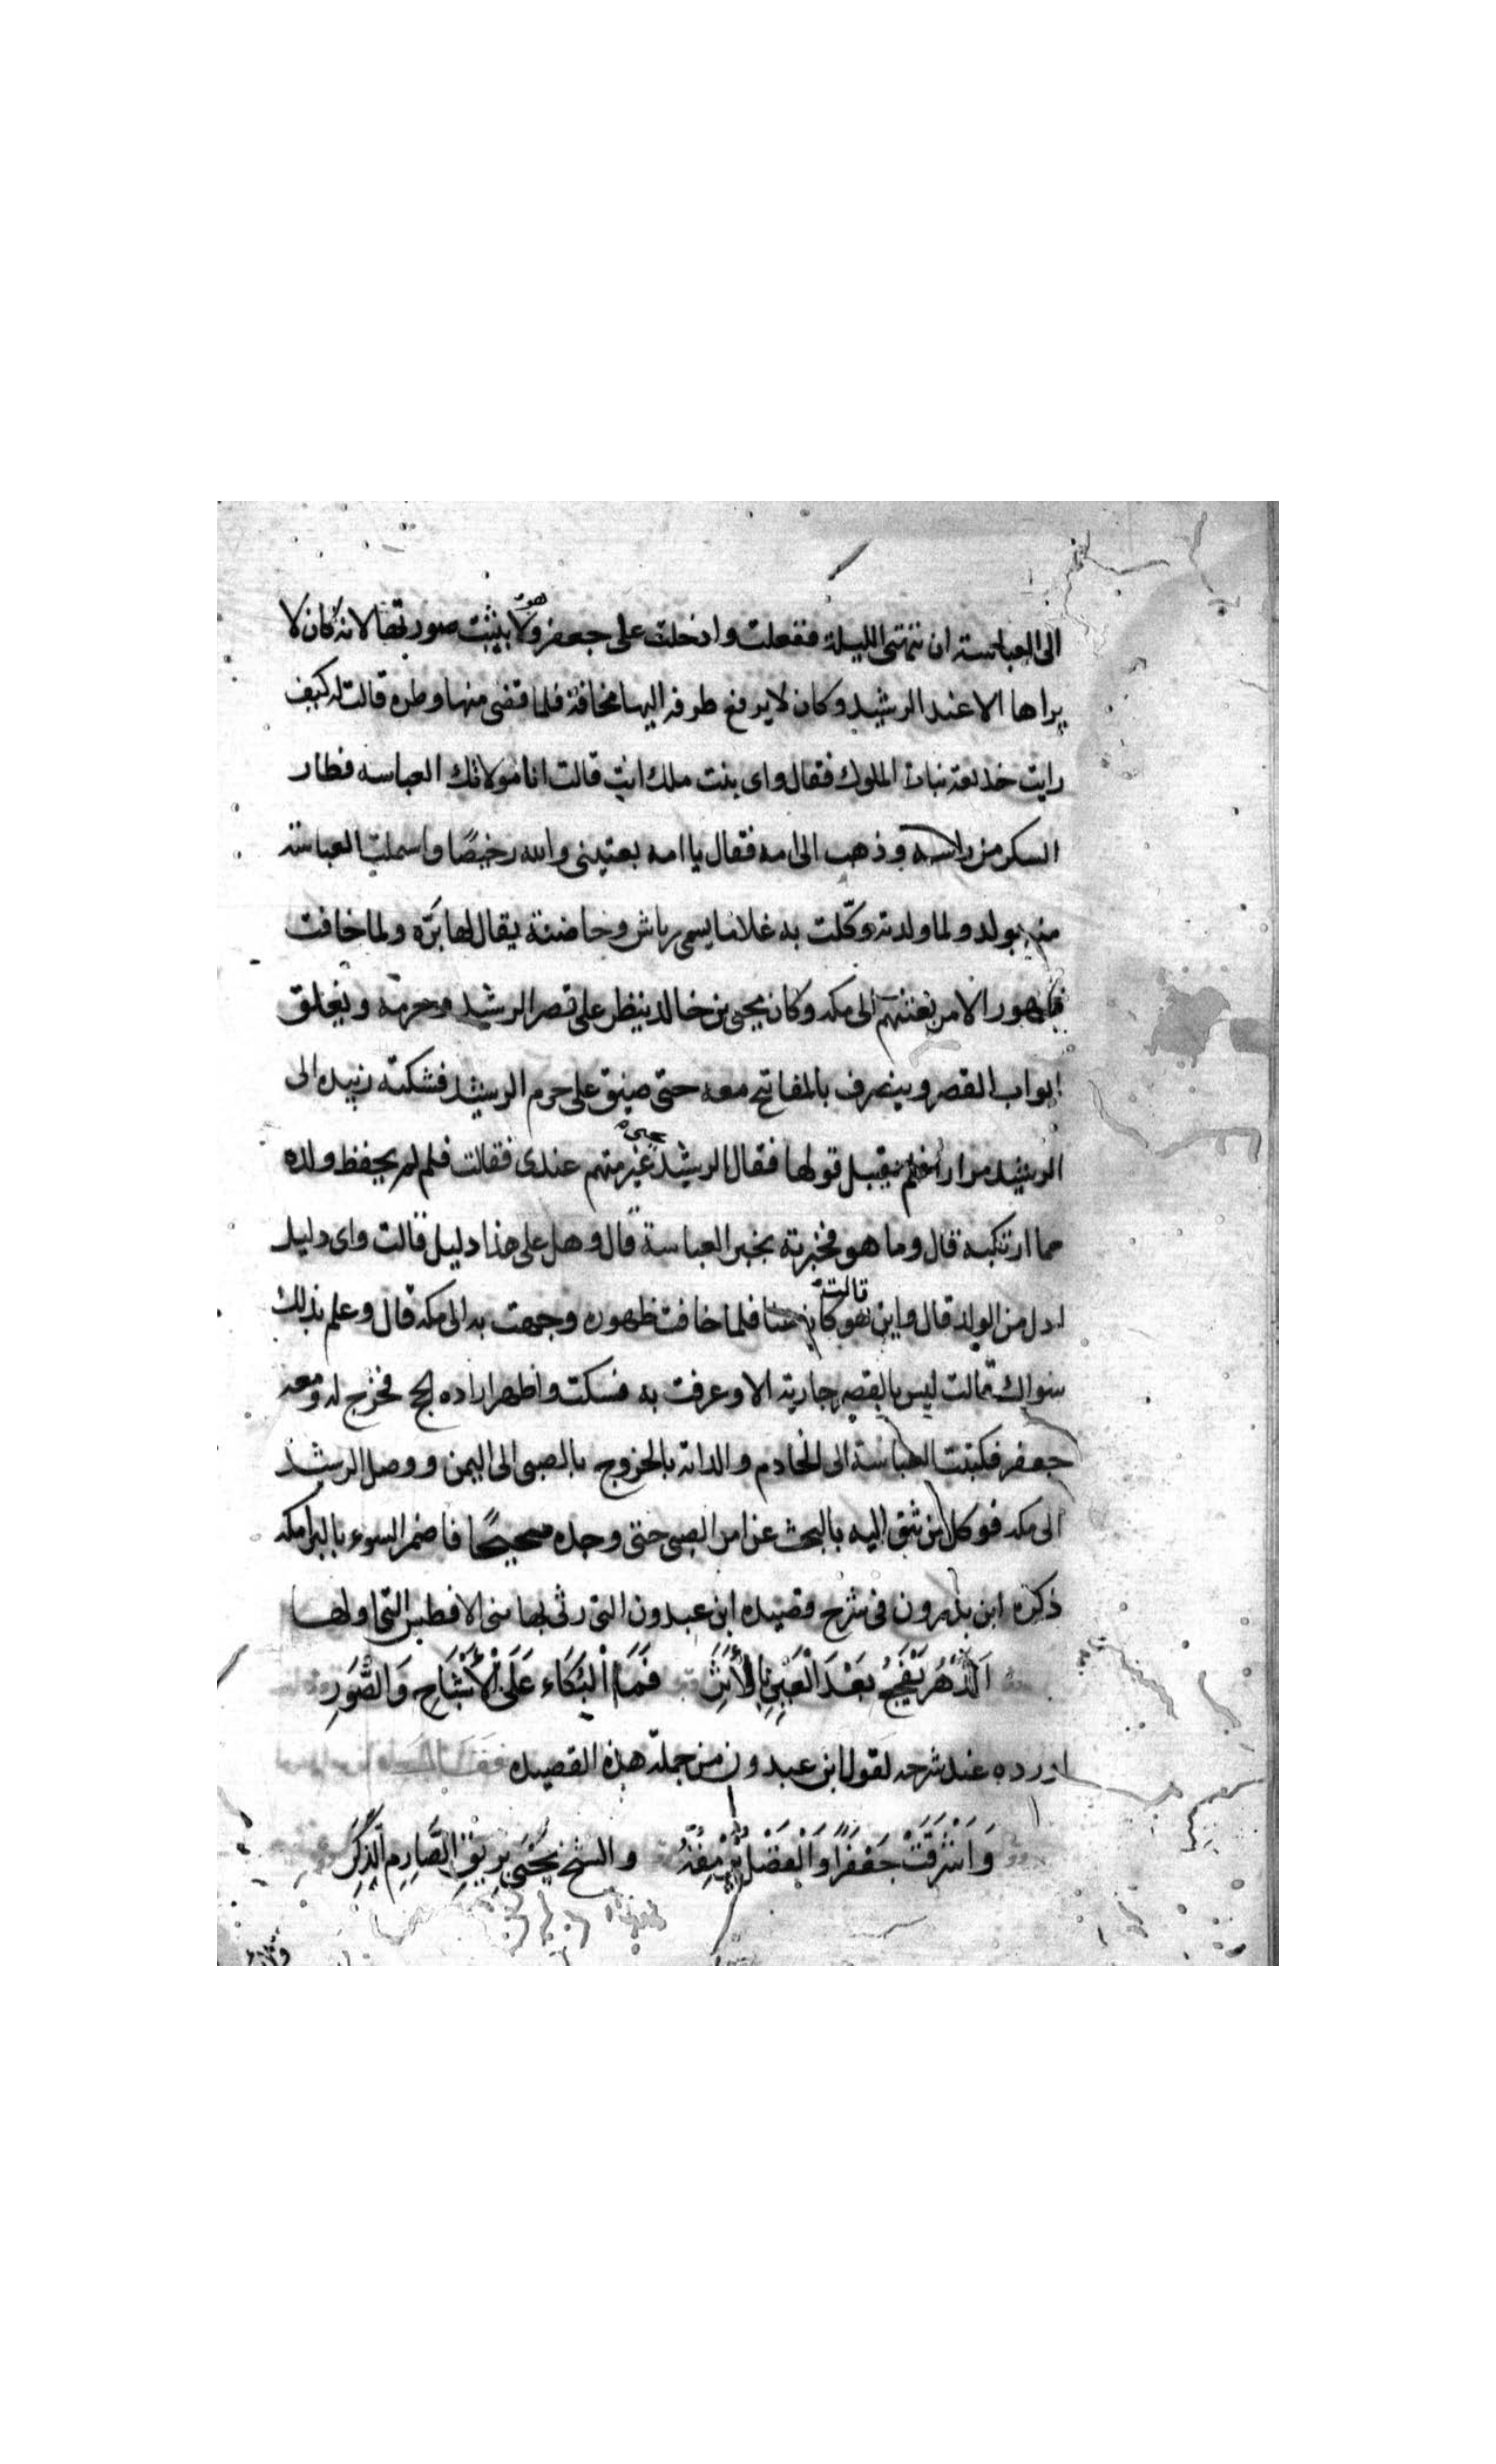 الى العباسة ان تتهيئ الليلة ففعلت وادخلت على جعفر وهو لا يثبت صورتها لانه كان لا
يراها الا عند الرشيد وكان لا يرفع طرفه اليها مخافة فلما قضى منها وطره قالت له كيف
رايت خديعة بنات الملوك فقال واى بنت ملك انت قالت انا مولاتك العباسه فطار
السكر من راسه وذهب الى امه فقال يا امه بعتينى والله رخيصًا واشتملت العباسة
منه بولد ولما ولدته وكّلت به غلاما يسمى رياش وحاضنة يقال لها برّه ولما خافت
ظهور الامر بعثتهم الى مكه وكان يحيى بن خالد ينظر على قصر الرشيد وحرمه ويغلق
ابواب القصر وينصرف بالمفاتيح معه حتى ضيق على حرم الرشيد فشكته زبيده الى
الرشيد مرارا فلم يقبل قولها فقال الرشيد يحيى غير متهم عندى فقالت فلم لم يحفظ ولده
مما ارتكبه قال وما هو فخبرته بخبر العباسة قال وهل على هذا دليل قالت واى دليل
ادل من الولد قال واين هو قالت كان هنا فلما خافت ظهوره وجهت به الى مكه قال وعلم بذلك
سواك قالت ليس بالقصر جارية الا وعرفت به فسكت واظهر اراده الحج فخرج له ومعه
جعفر فكتبت العباسة الى الخادم والداية بالخروج بالصبى الى اليمن ووصل الرشيد
الى مكه فوكل من يثق اليه بالبحث عن امر الصبى حتى وجده صحيحًا فاضمر السوء بالبرامكه
ذكره ابن بدرون فى شرح قصيده ابن عبدون التى رثى بها بنى الافطس التى اولها
اَلدَّهْرُ يَفْجَعُ بَعْدَ الْعَيْنِ بِالْأَثَرِ فَمَا الْبُكَاءُ عَلَى الْأَشْبَاحِ وَالصُّوَرِ
اورده عند شرحه لقول ابن عبدون من جملة هذه القصيده
وَاَشْرَقَتْ جَعْفَرًا وَالْفَضْلُ يَرْمُقُهُ والشيخ يَحْيَى بِرِيقِ الصَّارِمِ الذَّكَرِ